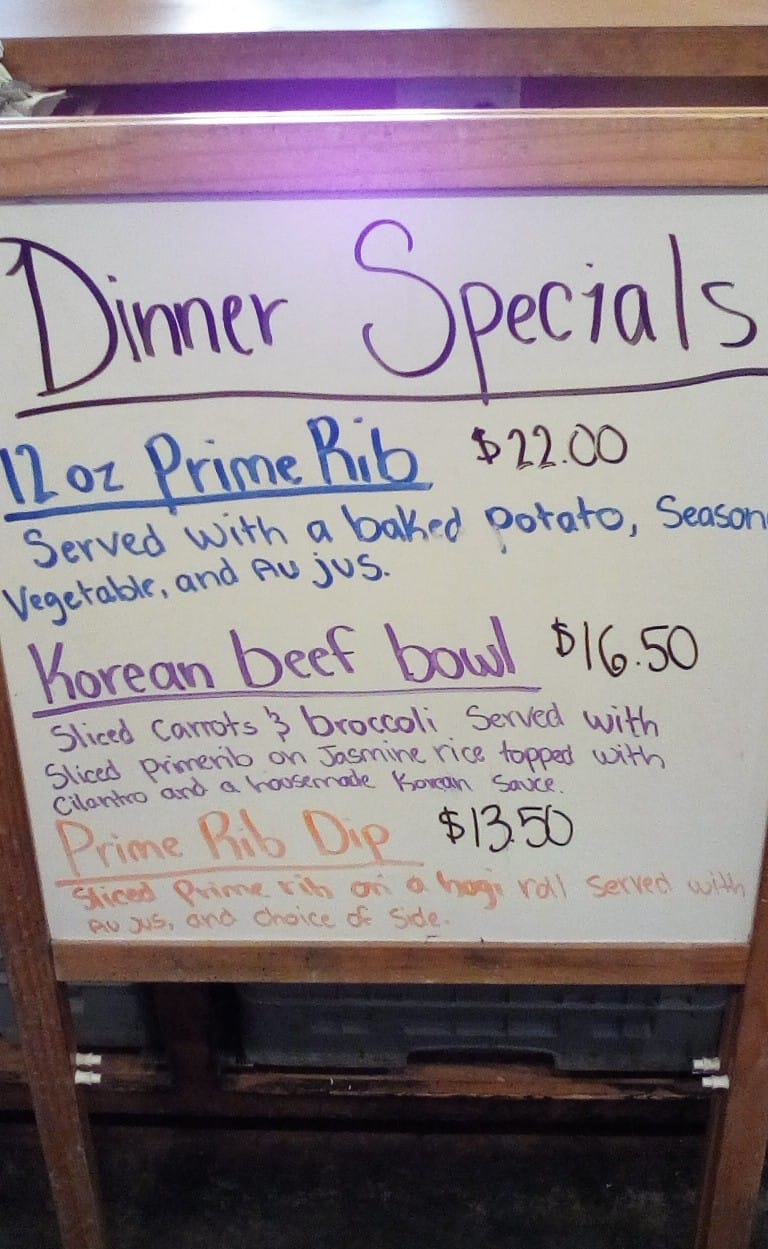 Dinner Specials
12 oz Prime Rib $22.00
Served with a baked potato, Season
Vegetable, and Au jus.
Korean beef bowl $16.50
Sliced Carrots & broccoli Served with
Sliced primerib on Jasmine rice topped with
Cilantro and a housemade Korean Sauce.
Prime Rib Dip $13.50
Sliced Prime rib on a hogi roll Served with
Au jus, and choice of side.